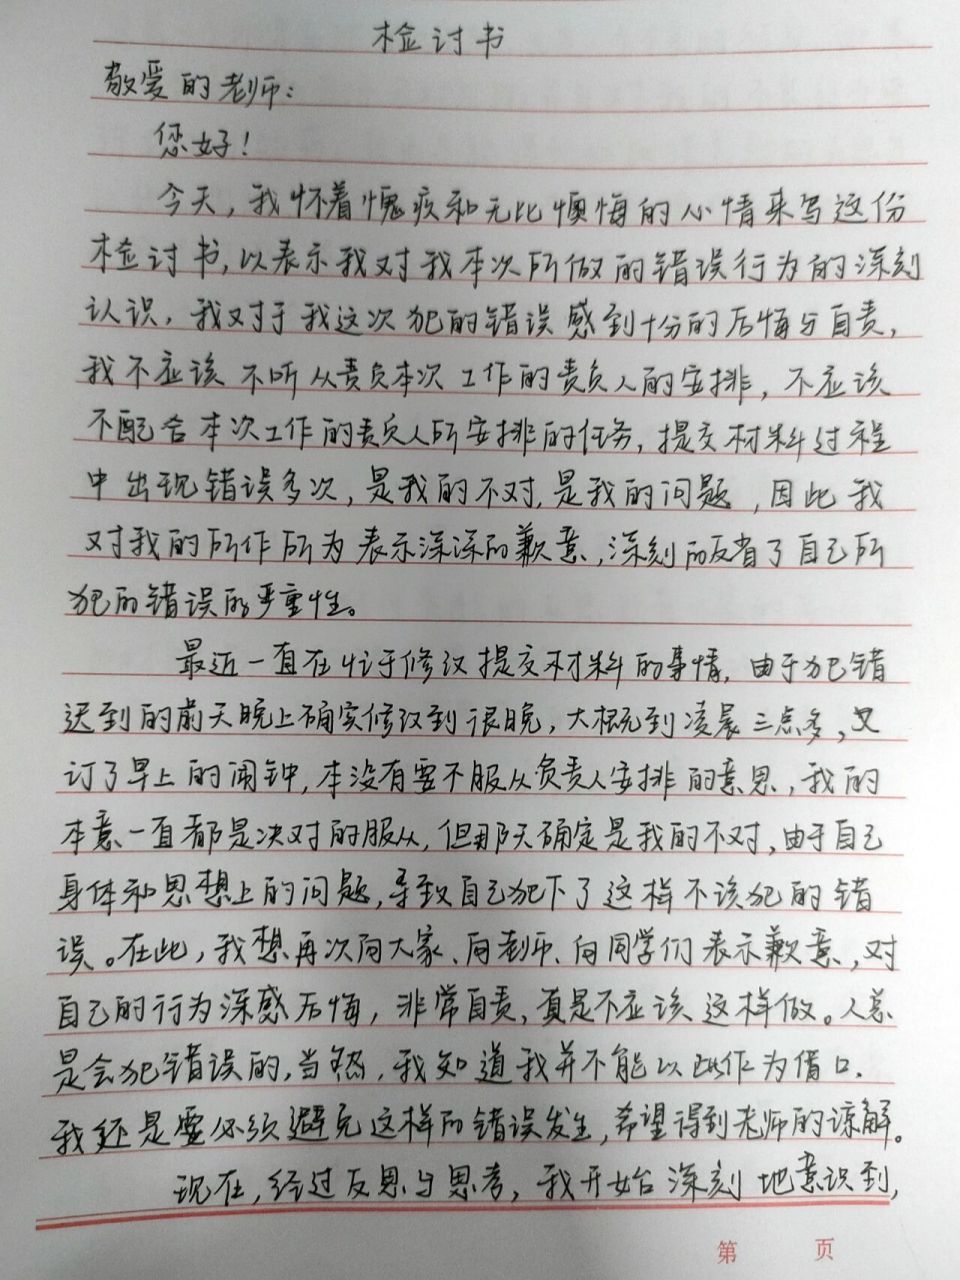 检讨书
敬爱的老师:
您好!
今天,我怀着愧疚和无比懊悔的心情来写这份
检讨书,以表示我对我本次所做的错误行为的深刻
认识,我对于我这次犯的错误感到十份的后悔与自责,
我不应该不听从责负本次工作的责负人的安排,不应该
不配合本次工作的责负人所安排的任务,提交材料过程
中出现错误多次,是我的不对,是我的问题,因此我
对我的所作所为表示深深的歉意,深刻的反省了自己所
犯的错误的严重性。
最近一直在忙于修改提交材料的事情,由于犯错
迟到的前天晚上确实修改到很晚,大概到凌晨三点多,又
订了早上的闹钟,本没有要不服从负责人安排的意思,我的
本意一直都是决对的服从,但那天确定是我的不对,由于自己
身体和思想上的问题,导致自己犯下了这样不该犯的错
误。在此,我想再次向大家、向老师、向同学们表示歉意,对
自己的行为深感后悔,非常自责,真是不应该这样做。人总
是会犯错误的,当然,我知道我并不能以此作为借口,
我还是要必须避免这样的错误发生,希望得到老师的谅解。
现在,经过反思与思考,我开始深刻地意识到,
第 页